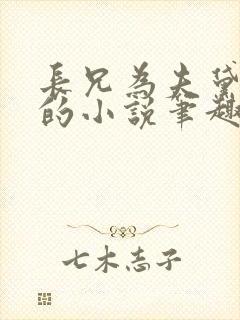 長兄為夫黛
的小說筆趣
七木志子